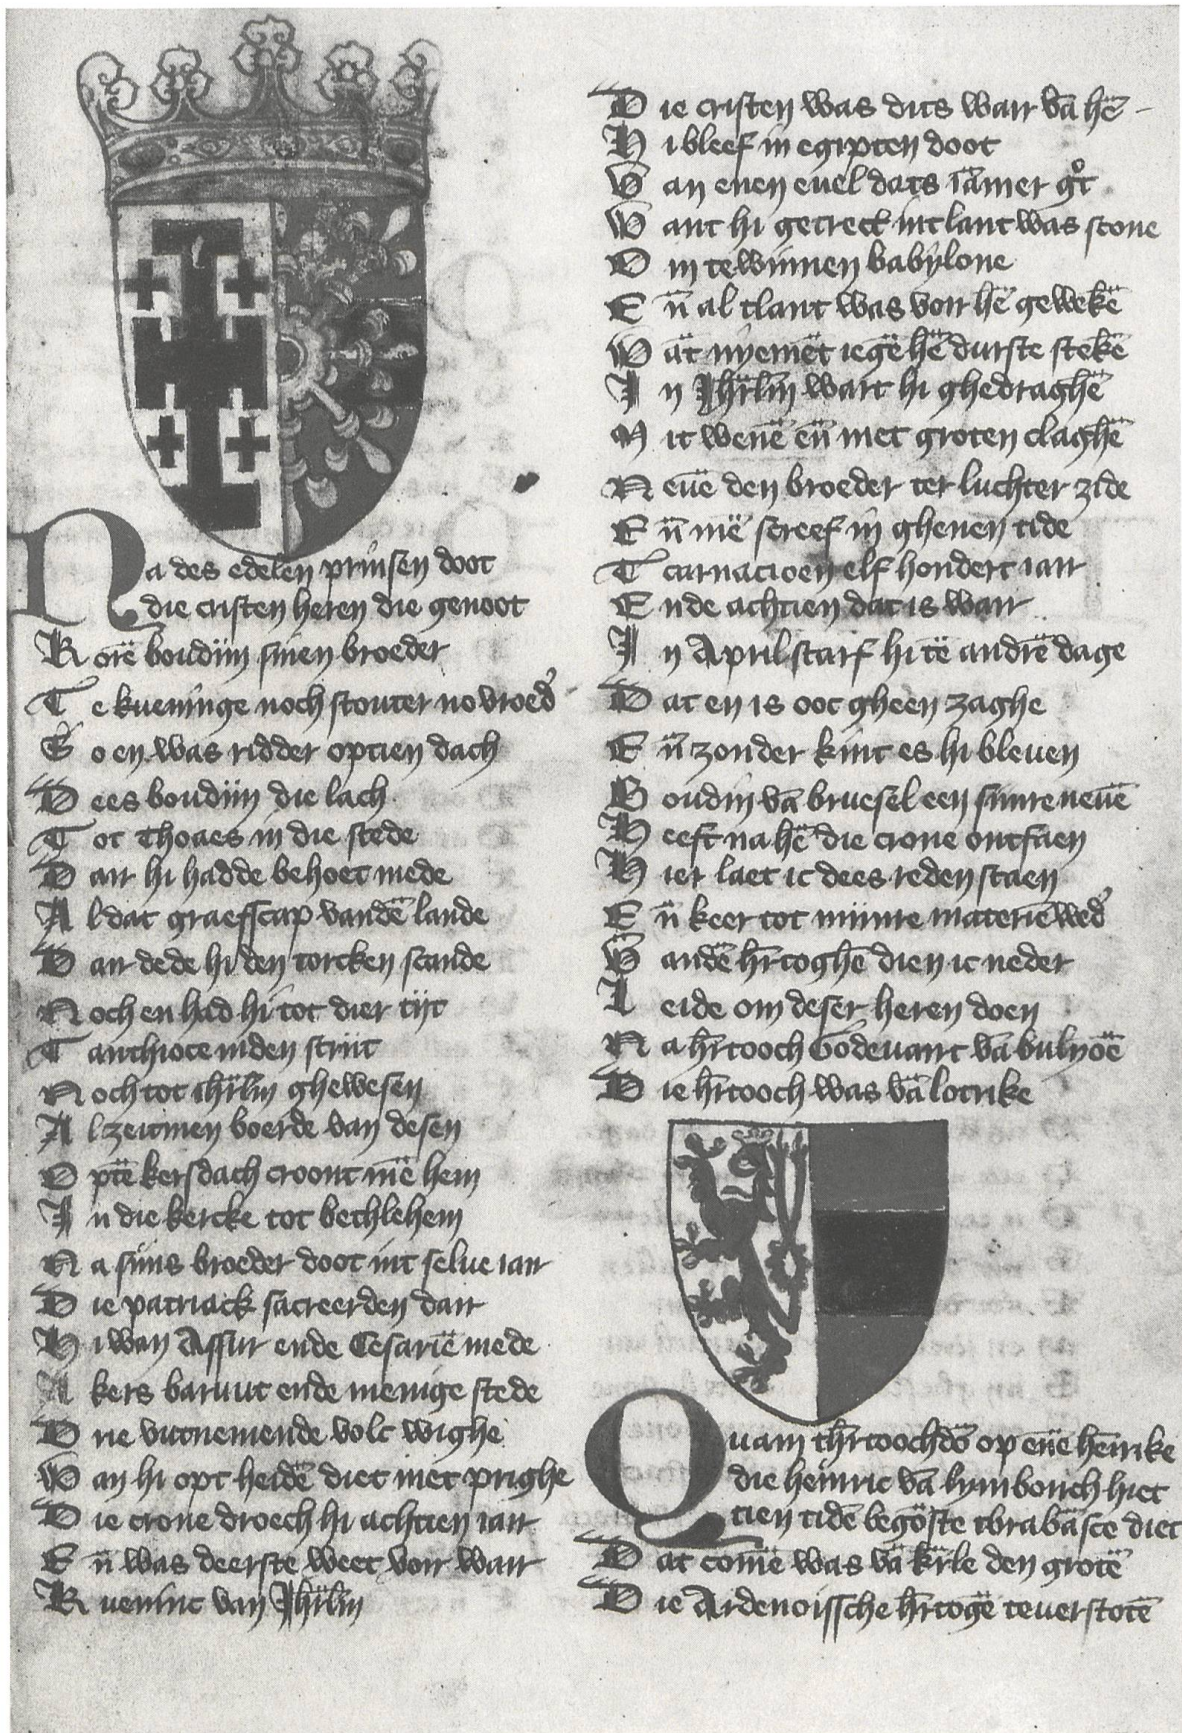 Na des edelen prinsen doot
die cristen heren die genoot
Korē boudijn sinen broeder
Te kueninge noch stouter no vroed̉
So en was ridder optien dach
Dees boudijn die lach
Tot Thoaes in die stede
Daer hi hadde behoet mede
Al dat graefscap vandē lande
Daer dede hi den torcken scande
Noch en had hi tot dier tijt
Tanthiote inden strijt
Noch tot ihrl̄m ghewesen
Al zeitmen boerde van desen
Optē kersdach croont mē hem
In die kercke tot bethlehem
Na sijns broeder doot int selue iaer
Die patriack sacreerden daer
Hi wan Assur ende Cesariē mede
Akers baruut ende menige stede
Drie vutnemende volc wighe
Wan hi opt heidē diet met prighe
Die crone droech hi achtien iaer
En̄ was deerste weet voir waer
Kueninc van Jhrl̄m
Die cristen was dits waer vā hē
Hi bleef in egipten doot
Van enen euel dats iāmer gͦt
Want hi getreck int lant was scone
Om te winnen babylone
En̄ al tlant was voir hē gewekē
Wāt nyemēt iegē hē durste stekē
In Jhrl̄m wart hi ghedraghē
Mit wenē en̄ met groten claghē
Neuē den broeder ter luchter zide
En̄ mē screef in ghenen tide
Tcarnacioen elf hondert iaer
Ende achtien dat is waer
In April starf hi tē andrē dage
Dat en is ooc gheen zaghe
En̄ zonder kint es hi bleuen
Boudin vā bruesel een sijnre neuē
Heeft na hē die crone ontfaen
Hier laet ic dees reden staen
En̄ keer tot mijnre materiē wed̉
Vandē hr̄toghē dien ic neder
Leide om deser heren doen
Na hr̄tooch Godeuart vā bulyoē
Die hr̄tooch was vā lotrike
Quam thr̄toochdō op enē henrike
die heinric vā lymborch hiet
tien tidē begōste tbrabāsce diet
Dat comē was vā kr̄le den grotē
Die Ardenoissche hr̄togē teuerstotē